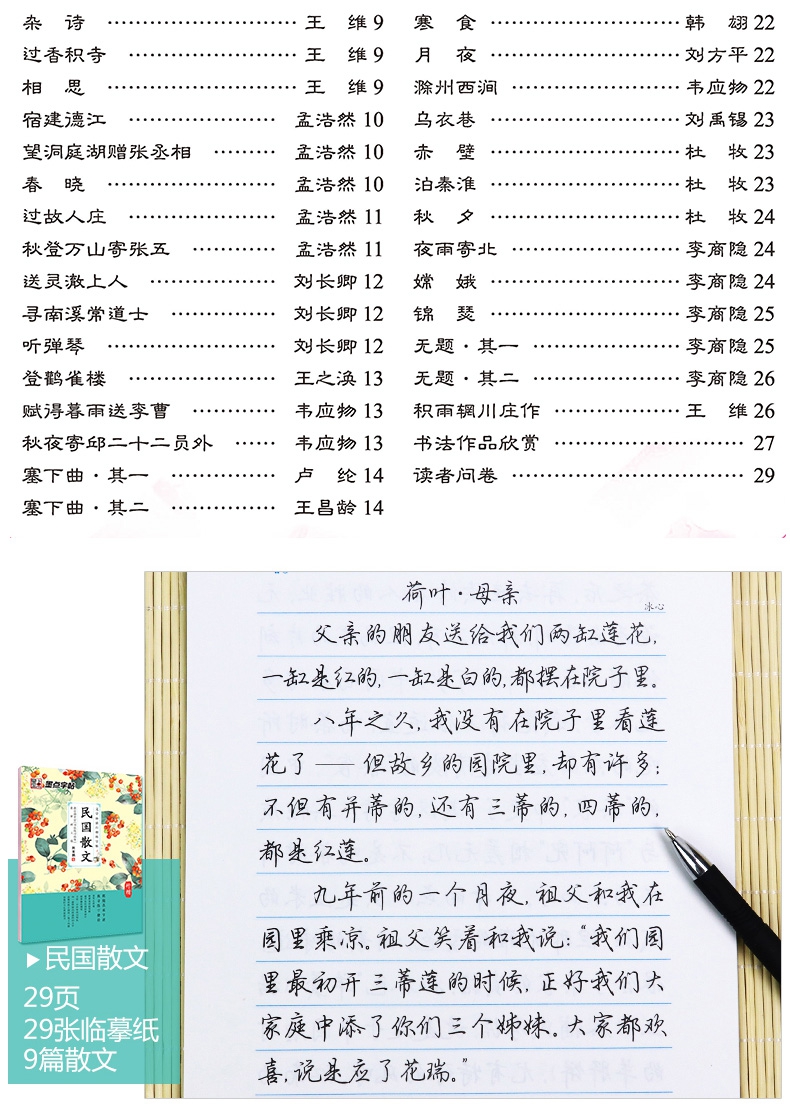 杂 诗 …………………… 王 维 9
过香积寺 ………………… 王 维 9
相 思 …………………… 王 维 9
宿建德江 ……………… 孟浩然 10
望洞庭湖赠张丞相 ……… 孟浩然 10
春 晓 ………………… 孟浩然 10
过故人庄 ……………… 孟浩然 11
秋登万山寄张五 ………… 孟浩然 11
送灵澈上人 …………… 刘长卿 12
寻南溪常道士 ………… 刘长卿 12
听弹琴 ………………… 刘长卿 12
登鹳雀楼 ……………… 王之涣 13
赋得暮雨送李曹 ………… 韦应物 13
秋夜寄邱二十二员外 …… 韦应物 13
塞下曲·其一 …………… 卢 纶 14
塞下曲·其二 …………… 王昌龄 14
寒 食 ………………… 韩 翃 22
月 夜 ………………… 刘方平 22
滁州西涧 ……………… 韦应物 22
乌衣巷 ………………… 刘禹锡 23
赤 壁 ………………… 杜 牧 23
泊秦淮 ………………… 杜 牧 23
秋 夕 ………………… 杜 牧 24
夜雨寄北 ……………… 李商隐 24
嫦 娥 ………………… 李商隐 24
锦 瑟 ………………… 李商隐 25
无题·其一 …………… 李商隐 25
无题·其二 …………… 李商隐 26
积雨辋川庄作 ………… 王 维 26
书法作品欣赏 ………………… 27
读者问卷 …………………… 29
荷叶·母亲
冰心
父亲的朋友送给我们两缸莲花,
一缸是红的,一缸是白的,都摆在院子里。
八年之久,我没有在院子里看莲
花了——但故乡的园院里,却有许多;
不但有并蒂的,还有三蒂的,四蒂的,
都是红莲。
九年前的一个月夜,祖父和我在
园里乘凉。祖父笑着和我说:“我们园
里最初开三蒂莲的时候,正好我们大
家庭中添了你们三个姊妹。大家都欢
喜,说是应了花瑞。”
墨点字帖
民国散文
民国散文
29页
29张临摹纸
9篇散文